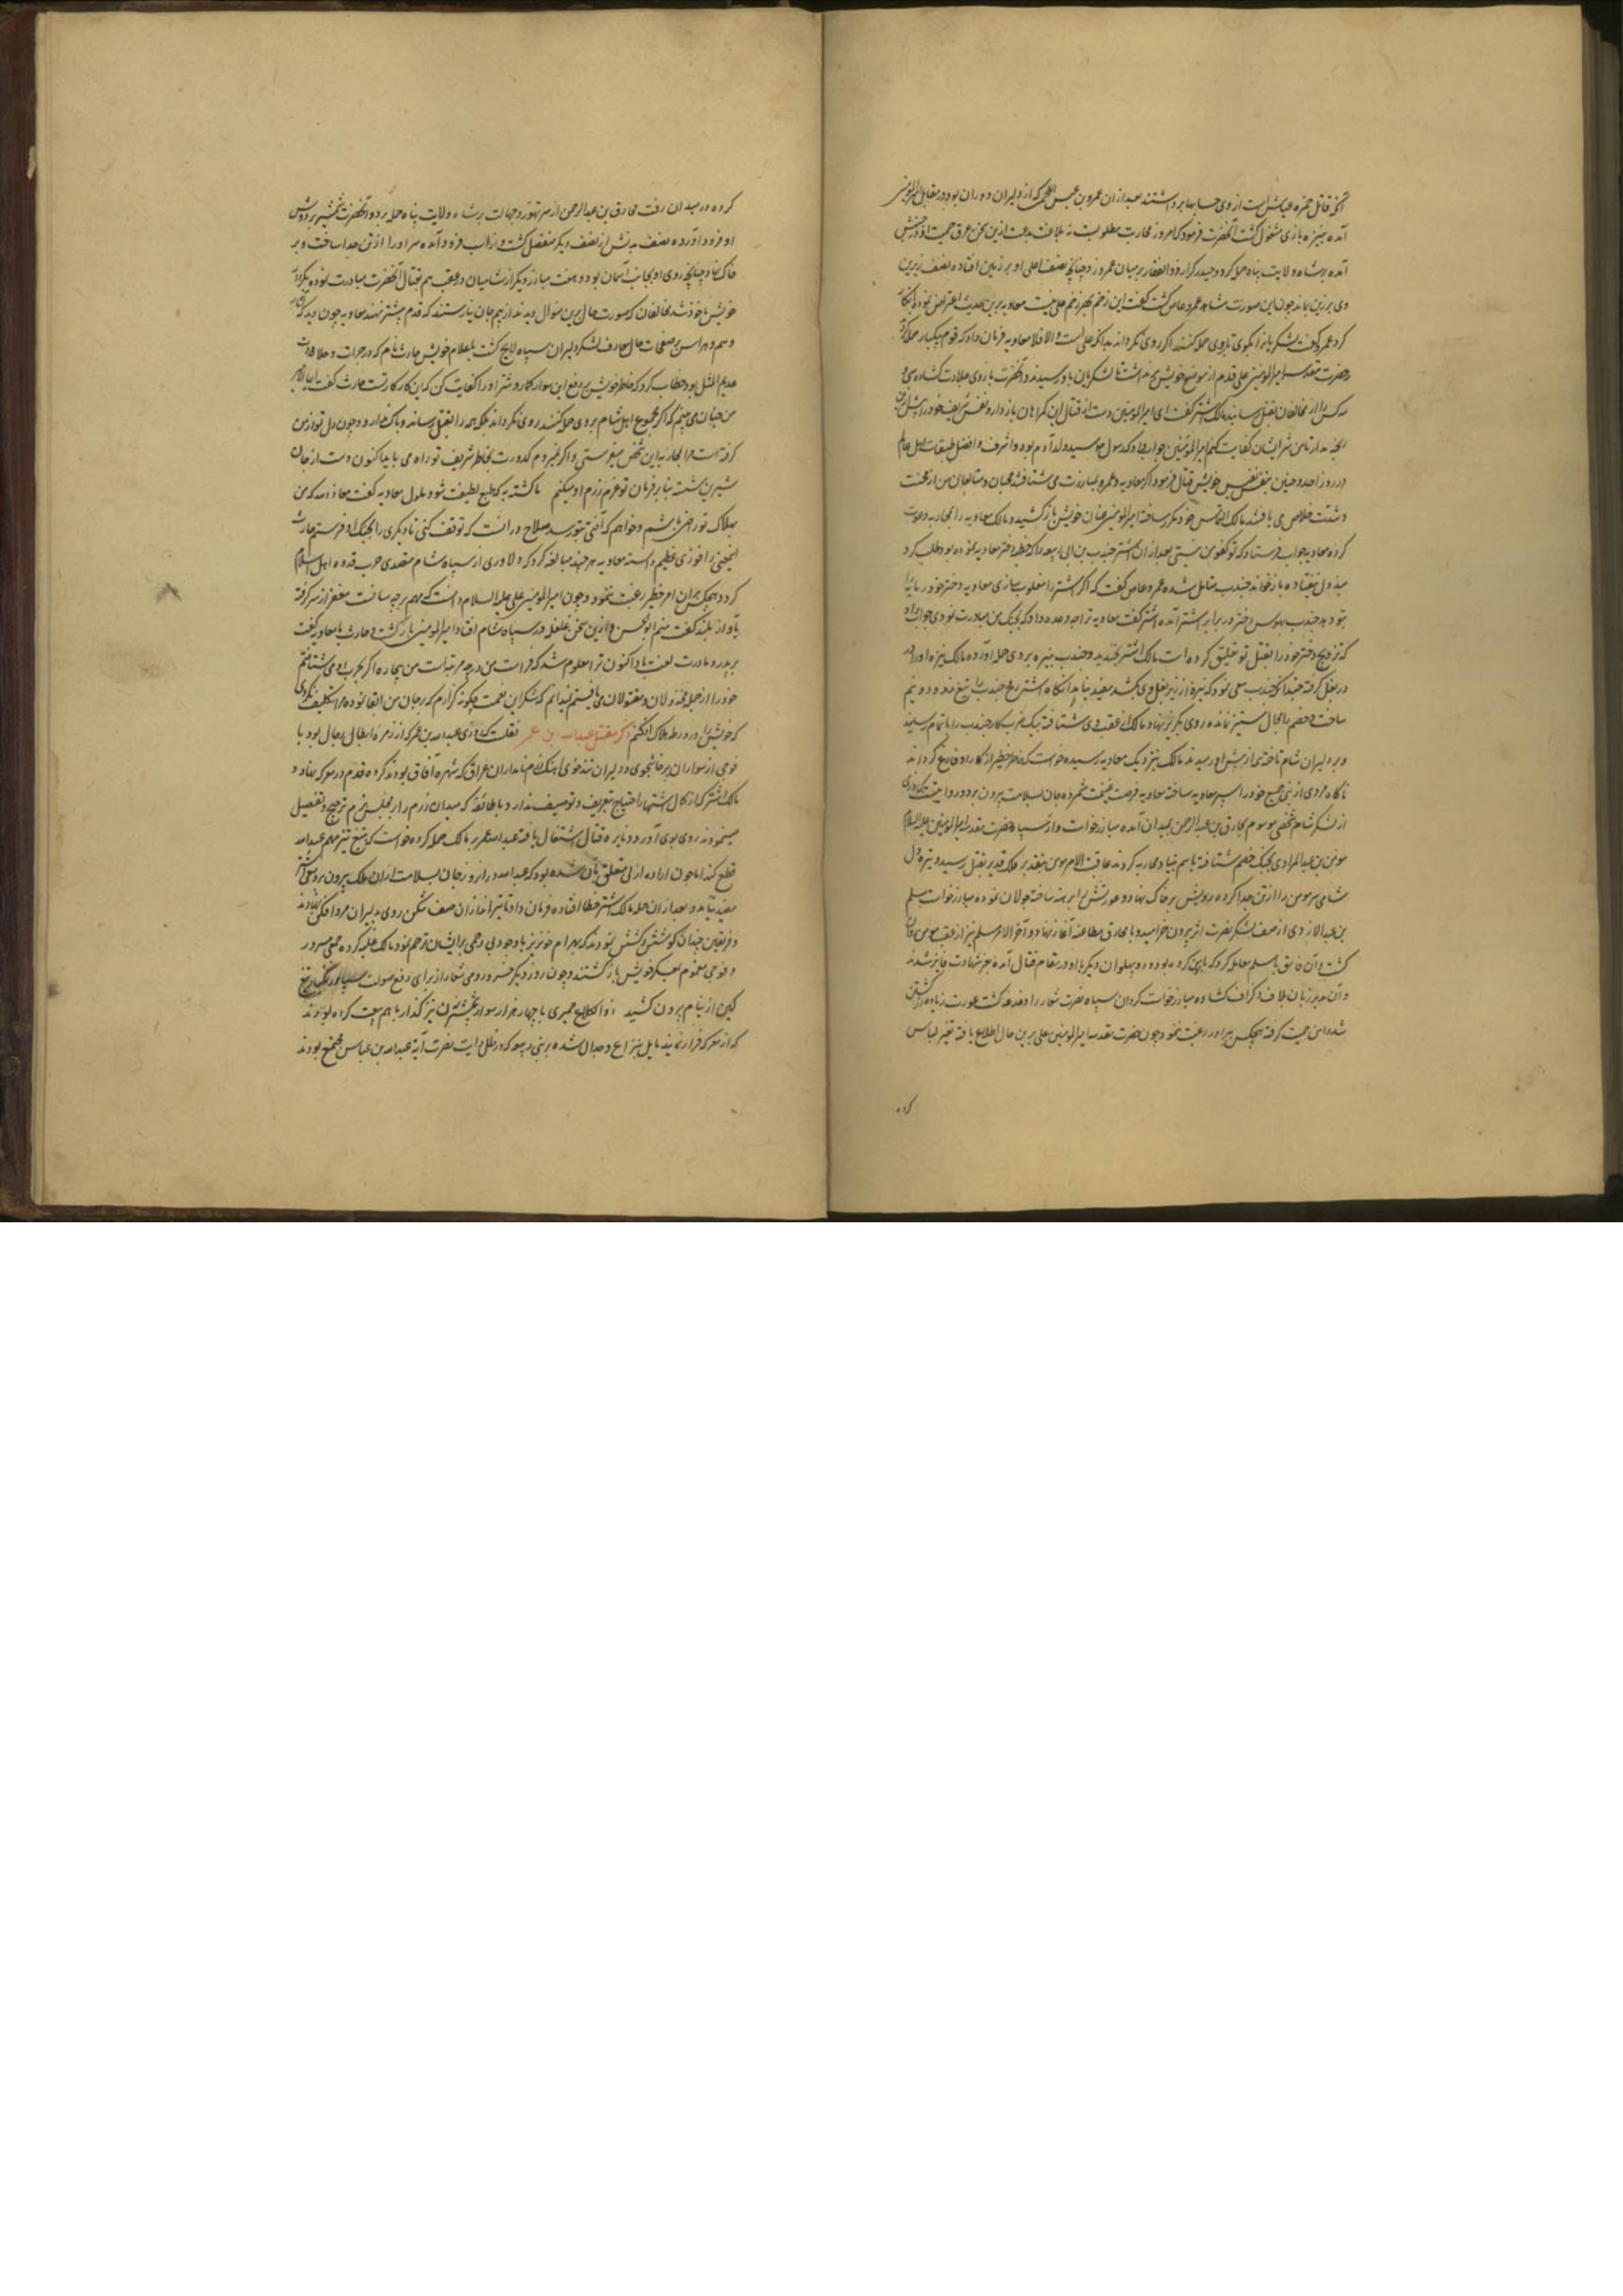 آنکه قاتل حمزه عیاش است از وی حسابها برداشتند بعد از ان عمرو بن عبس اللخمی که از دلیران دوران بود در مقابل امیرالمومنین
آمده بنیزه بازی مشغول کشت آنحضرت فرمود که امروز محاربت مطلوبست نه ملاعبت ازین سخن عرق حمیت او در جنبش
آمده بر شاه ولایت پناه حمله کرد و حیدر کرار ذوالفقار بر میان عمرو زد چنانچه نصف اعلی او بر زمین افتاده نصف زیرین
وی بر زین بماند چون این صورت مشاهد عمرو عاص کشت کفت این زخم بجز زخم علی نیست معاویه برین حدیث اعتراض نموده انکار
کرد عمرو کفت لشکریانرا بکوی تا بروی حمله کنند اکر روی نکرداند بدانکه علی است و الا فلا معاویه فرمان داد که قوم بیکبار حمله کردند
حضرت مقدسه امیرالمومنین علی قدم از موضع خویش برنداشت تا لشکریان باو رسیدند و آنحضرت بازوی جلادت کشاده سی و
سه کس را از مخالفان بقتل رسانید مالک اشتر کفت ای امیرالمومنین دست از قتال این کمراهان باز دار و نفس شریف خود را
رنجه مدار تا من شر ایشان کفایت کنم امیرالمومنین جواب داد که رسول خدا سید ولد آدم بود و اشرف و افضل طبقات اهل عالم
در روز احد و حنین بنفس نفیس خویش قتال فرمود اکر معاویه و عمرو بمبارزت من می شتافتند محبان و متابعان من از محنت
و مشقت خلاص می یافتند مالک التماس خود مکرر ساخته امیرالمومنین عنان خویش باز کشید و مالک معاویه را بمحاربه دعوت
کرده معاویه جواب فرستاد که تو کفو من نیستی بعد از ان اشتر جندب بن ابی ربیعه را که خطبه دختر معاویه نموده بود طلب کرد
مبذول نیفتاده باز خواند جندب متامل شده عمرو عاص کفت که اکر اشتر را مغلوب سازی معاویه دختر خود رمله را
بتو دهد جندب بهوس دختر در برابر اشتر آمده اشتر کفت معاویه ترا چه وعده داد که بجنک من مبادرت نمودی جواب داد
که تزویج دختر خود را بقتل تو تعلیق کرده است مالک اشتر بخندید و جندب بنیزه بر وی حمله آورده مالک نیزه او را
در بغل کرفته چندانکه جندب سعی نمود که نیزه از زیر بغل وی بکشد مفید نیامد آنکاه اشتر رمح جندب را بتیغ زده دو نیم
ساخت و خصم را مجال ستیز نمانده روی بکریز نهاد مالک از عقب وی شتافته بیک ضرب کار جندب را باتمام رسانید
و بر دلیران شام تاخته ایشان از پیش او رمیدند مالک بنزدیک معاویه رسیده خواست که خاطر خطیر از کار او فارغ کرداند
ناکاه مردی از بنی جمح خود را سپر معاویه ساخته معاویه فرصت غنیمت شمرده جان بسلامت بیرون برد و روایتست که
از لشکر شام شخصی موسوم بمخارق بن عبدالرحمن بمیدان آمده مبارز خواست و از سپاه حضرت مقدسه امیرالمومنین علیه السلام
مومن بن عبدالمرادی بجنک خصم شتافته با هم بنیاد محاربه کردند عاقبت الامر مومن بتقدیر ملک قدیر بقتل رسید و تیره دل
شامی سر مومن را از تن جدا کرده رویش بر خاک نهاد و عورتش را برهنه ساخته جولان نموده مبارز خواست مسلم
بن عبدالازدی از صف لشکر نصرت اثر بیرون خرامید و با مخارق مطاعنه آغاز نهاد و آخر الامر مسلم نیز از عقب مومن روان
کشت و آن فاسق با مسلم معامله کرد که با مومن کرده بود و دو پهلوان دیکر با او در مقام قتال آمده بعز شهادت فایز شدند
و آن مدبر زبان بلاف و کزاف کشاده مبارز خواست کردان سپاه نصرت شعار را دغدغه کشف عورت زیاده از کشتن
شد و این جهت کرفته هیچکس بمبارزت او رغبت ننمود چون حضرت مقدسه امیرالمومنین علی برین حال اطلاع یافته تغیر لباس
کرده
کرده در میدان رفت مخارق بن عبدالرحمن از سر تهور و جهالت بر شاه ولایت پناه حمله برد و آنحضرت شمشیر بر دوش
او فرود آورده نصف بدنش از نصف دیکر منفصل کشت و از اسب فرود آمده سر او را از تن جدا ساخت و بر
خاک نهاد چنانچه روی او بجانب آسمان بود و هفت مبارز دیکر از شامیان در عقب هم بقتال آنحضرت مبادرت نموده
خویش ماخوذ شدند مخالفان که صورت حال برین منوال دیدند از بیم جان نیارستند که قدم پیشتر نهند معاویه چون دید که آثار
وهم و هراس بر صفحات حال معارف لشکر و دلیران سپاه لایح کشت باغلام خویش حارث نام که در جرات و جلادت
عدیم المثل بود خطاب کرد که خاطر خویش بر دفع این سوار کمار و شر او را کفایت کن که این کار کار تست حارث کفت ایها الامیر
من چنان می بینم که اکر مجموع اهل شام بر وی حمله کنند روی نکرداند بلکه همه را بقتل رساند و باک ندارد و چون دل تو از من
کرفته است مرا بمحاربه این شخص میفرستی و اکر نمیروم کدورت بخاطر شریف تو راه می یابد اکنون دست از جان
شیرین شسته بنا بر فرمان تو عزم رزم او میکنم تا کشته به که طبع لطیفت شود ملول معاویه کفت معاذ الله که من
بهلاک تو راضی باشم و خواهم که آفتی بتو رسد صلاح در آنست که توقف کنی تا دیکری را بجنک او فرستم حارث
اینمعنی را فوزی عظیم دانسته معاویه هر چند مبالغه کرد که دلاوری از سپاه شام متصدی حرب قدوه اهل اسلام
کردد هیچکس بدان امر خطیر رغبت ننمود و چون امیرالمومنین علی علیه السلام دانست که مهم بر چه سانست مغفر از سر کرفته
بآواز بلند کفت منم ابوالحسن و ازین سخن غلغله در سپاه شام افتاد امیرالمومنین بازکشت و حارث با معاویه کفت
بر پدر و مادرت لعنت باد اکنون ترا معلوم شد که فراست من در چه مرتبه است من بیچاره اکر بحرب او می شتافتم
خود را از جمله مخذولان و مقتولان می یافتم نمیدانم که شکر این نعمت چکونه کزارم که بر جان من ابقا نموده مرا تکلیف نکردی
که خویش را در ورطه هلاک افکنم ذکر مقتل عبدالله بن عمر نقلست که روزی عبدالله بن عمر که از زمره ابطال رجال بود با
فوجی از سواران پرخاشجوی و دلیران تندخوی آهنک نامداران عراق که شهره آفاق بودند کرده قدم در معرکه نهاد و
مالک اشتر که از کمال اشتهار احتیاج بتعریف و توصیف ندارد با طائفه که میدان رزم را بر مجلس بزم ترجیح و تفضیل
مینمودند روی بوی آورد و نایره قتال اشتعال یافته عبدالله عمر بر مالک حمله کرده خواست که بتیغ تیز مهم عبدالله
قطع کند اما چون اراده ازلی متعلق بآن شده بود که عبدالله در انروز جان بسلامت از ان مهلکه بیرون برد سعی اشتر
مفید نیامد و بعد از ان حمله مالک اشتر خطا افتاده فرمان داد تا تیراندازان صف شکن روی بدلیران مرد افکن نهادند
و فریقین چندان کوشش و کشش نمودند که بهرام خونریز با وجود بی رحمی بر ایشان ترحم نمود مالک غلبه کرده جمعی مسرور
و فوجی مغموم بمعسکر خویش بازکشتند و چون روز دیکر خسرو رومی شعار از برای دفع صولت سپاه زنکبار تیغ
کین از نیام بیرون کشید ذوالکلاع حمیری با چهار هزار سوار خنجرکذار با هم بیعت کرده بودند
که از معرکه فرار ننمایند مایل بنزاع و جدال شده بر بنی ربیعه که در ظلل رایت نصرت آیة عبدالله بن عباس مجتمع بودند